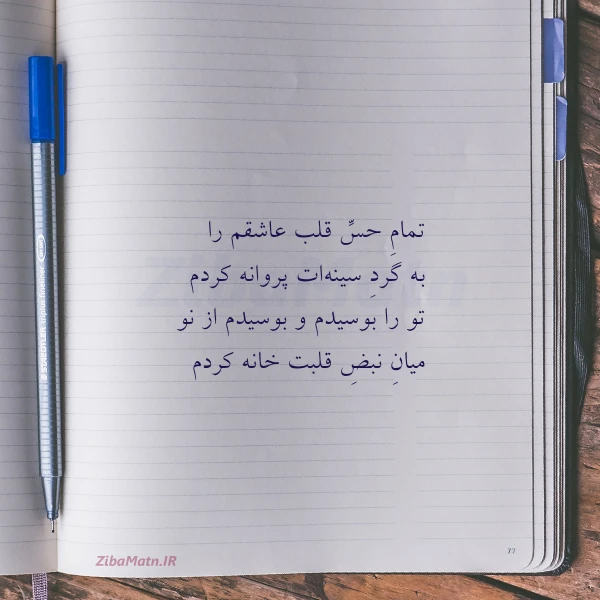 تمامِ حسِّ قلب عاشقم را
به گردِ سینه‌ات پروانه کردم
تو را بوسیدم و بوسیدم از نو
میانِ نبضِ قلبت خانه کردم
ZibaMatn.IR